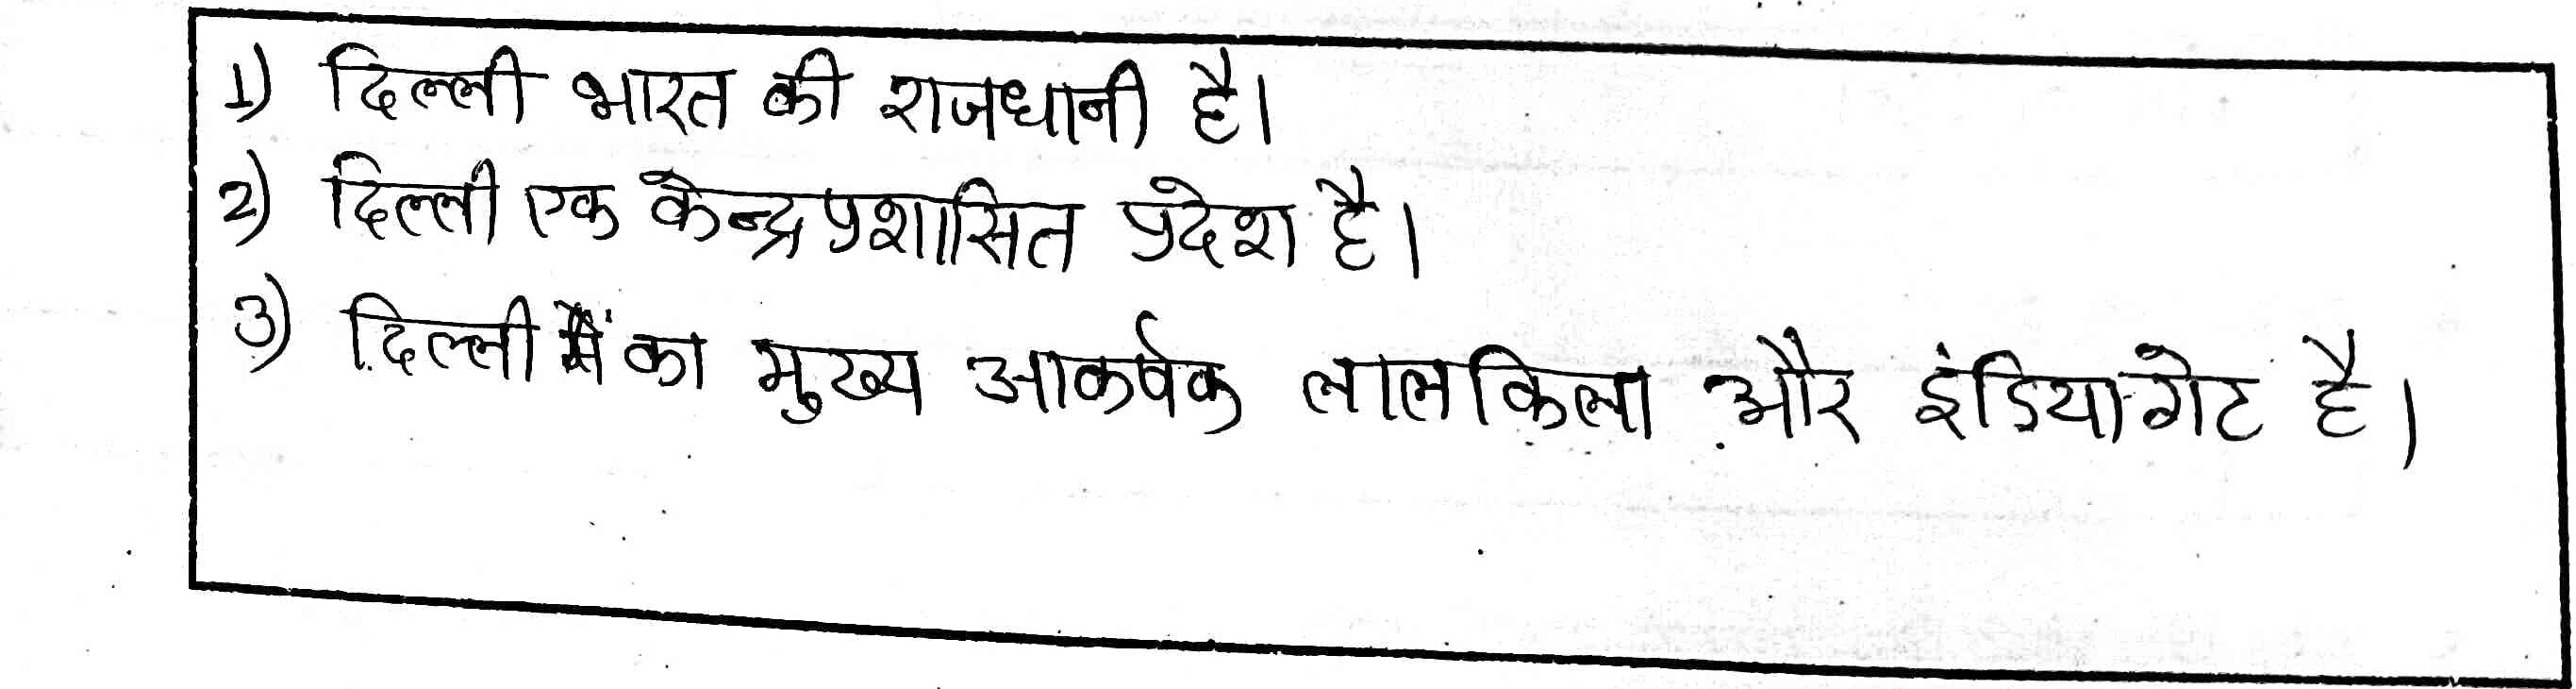 1) दिल्ली भारत की राजधानी है।
2) दिल्ली एक केन्द्रप्रशासित प्रदेश है।
3) दिल्ली का मुख्य आकर्षक लालकिला और इंडिया-गेट है।